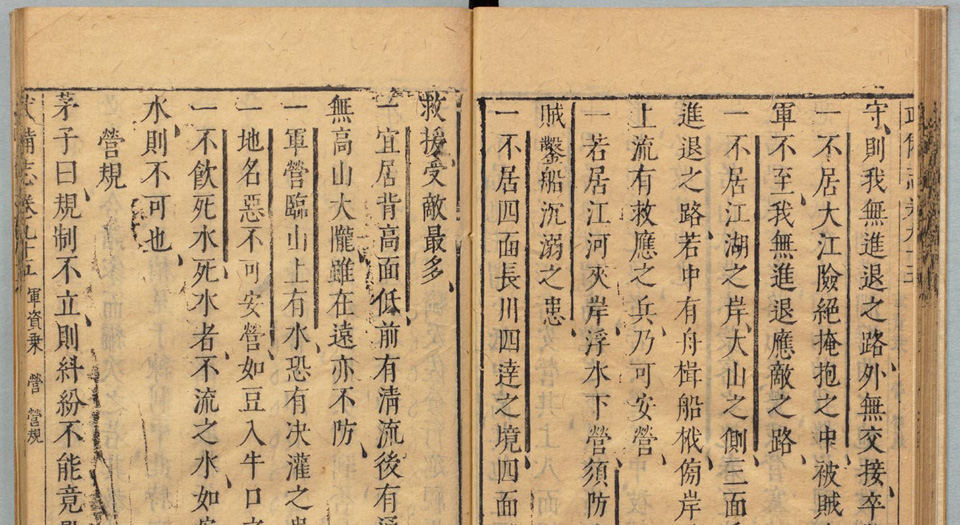 守則我無進退之路外無交接卒
一不居大江險絕掩抱之中被賊
軍不至我無進退應敵之路
一不居江湖之岸大山之側三面
進退之路若中有舟楫船栰傍岸
上流有救應之兵乃可安營
一若居江河夾岸浮水下營須防
賊鑿船沉溺之患
一不居四面長川四達之境四面
救援受敵最多
一宜居背高面低前有清流後有
無高山大隴雖在遠亦不防
一軍營臨山上有水恐有决灌之
一地名惡不可安營如豆入牛口之
一不飲死水死水者不流之水如
水則不可也
營規
茅子曰規制不立則糾紛不能竟
武備志卷九十五 軍資乘 營 營規